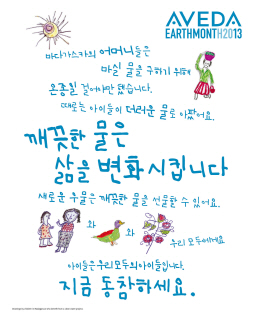 AVEDA
EARTHMONTH2013
마다가스카의 어머니들은
마실 물을 구하기 위해
온종일 걸어야만 했습니다.
때로는 아이들이 더러운 물로 아팠어요.
깨끗한 물은
삶을 변화시킵니다
새로운 우물은 깨끗한 물을 선물할 수 있어요.
와 와 우리 모두에게요
아이들은 우리 모두의 아이들입니다.
지금 동참하세요.